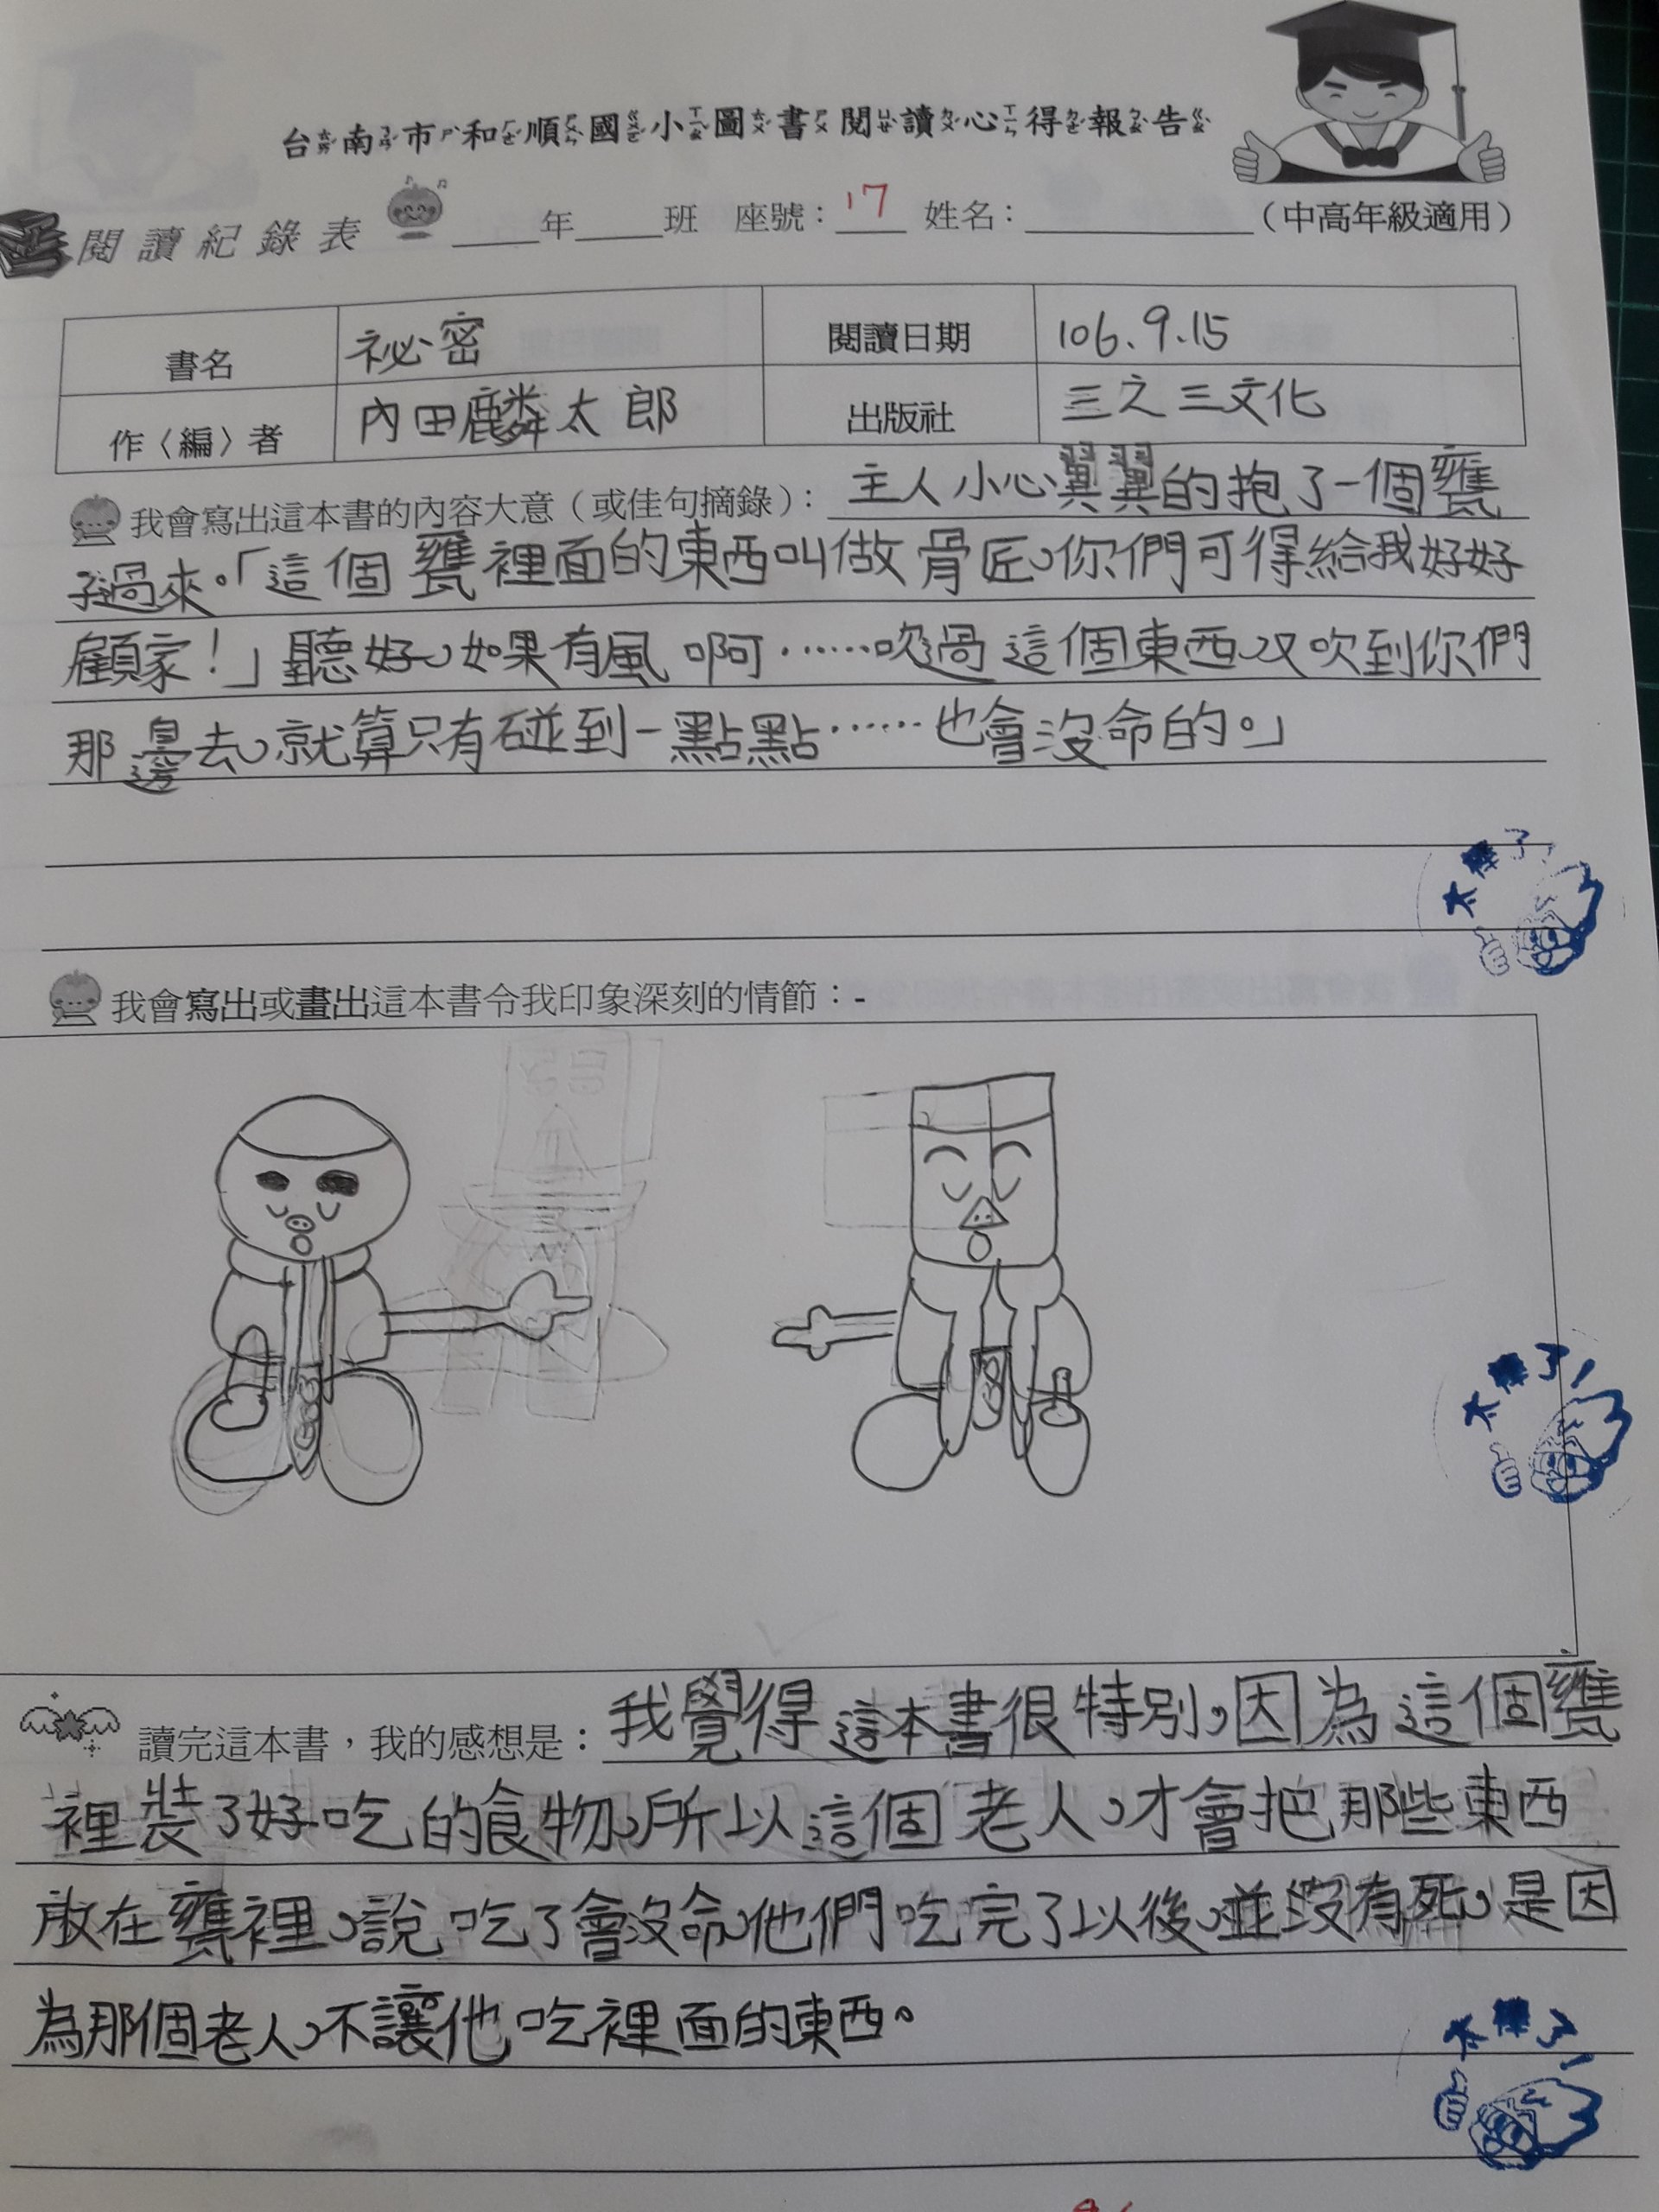 台南市和順國小圖書閱讀心得報告
閱讀紀錄表 ____年____班 座號：17 姓名：__________（中高年級適用）
書名 祕密 閱讀日期 106.9.15
作〈編〉者 內田麟太郎 出版社 三之三文化
我會寫出這本書的內容大意（或佳句摘錄）：主人小心翼翼的抱了一個甕
子過來。「這個甕裡面的東西叫做骨匠，你們可得給我好好
顧家！」聽好，如果有風啊……吹過這個東西，又吹到你們
那邊去，就算只有碰到一點點……也會沒命的。」
太棒了！
我會寫出或畫出這本書令我印象深刻的情節：-
太棒了！
讀完這本書，我的感想是：我覺得這本書很特別，因為這個甕
裡裝了好吃的食物，所以這個老人，才會把那些東西
放在甕裡，說吃了會沒命，他們吃完了以後，並沒有死，是因
為那個老人，不讓他吃裡面的東西。
太棒了！